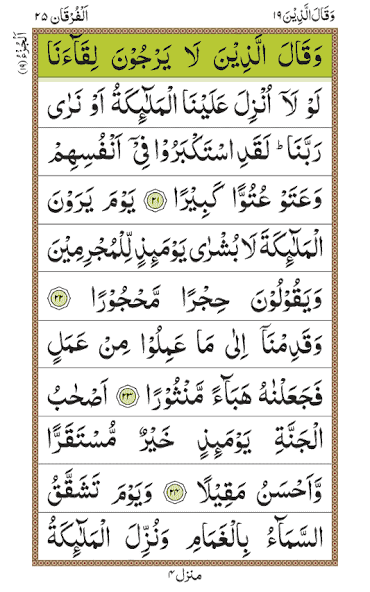 وَقَالَ الَّذِيْنَ ١٩
اَلْفُرْقَان ٢٥
اَلْجُزْءُ (١٩)
وَقَالَ الَّذِيْنَ لَا يَرْجُوْنَ لِقَآءَنَا
لَوْ لَاۤ اُنْزِلَ عَلَيْنَا الْمَلٰٓئِكَةُ اَوْ نَرٰى
رَبَّنَا ؕ لَقَدِ اسْتَكْبَرُوْا فِيْۤ اَنْفُسِهِمْ
وَعَتَوْ عُتُوًّا كَبِيْرًا ﴿٢١﴾ يَوْمَ يَرَوْنَ
الْمَلٰٓئِكَةَ لَا بُشْرٰى يَوْمَئِذٍ لِّلْمُجْرِمِيْنَ
وَيَقُوْلُوْنَ حِجْرًا مَّحْجُوْرًا ﴿٢٢﴾
وَقَدِمْنَاۤ اِلٰى مَا عَمِلُوْا مِنْ عَمَلٍ
فَجَعَلْنٰهُ هَبَآءً مَّنْثُوْرًا ﴿٢٣﴾ اَصْحٰبُ
الْجَنَّةِ يَوْمَئِذٍ خَيْرٌ مُّسْتَقَرًّا
وَّاَحْسَنُ مَقِيْلًا ﴿٢٤﴾ وَيَوْمَ تَشَقَّقُ
السَّمَآءُ بِالْغَمَامِ وَنُزِّلَ الْمَلٰٓئِكَةُ
منزل ٤